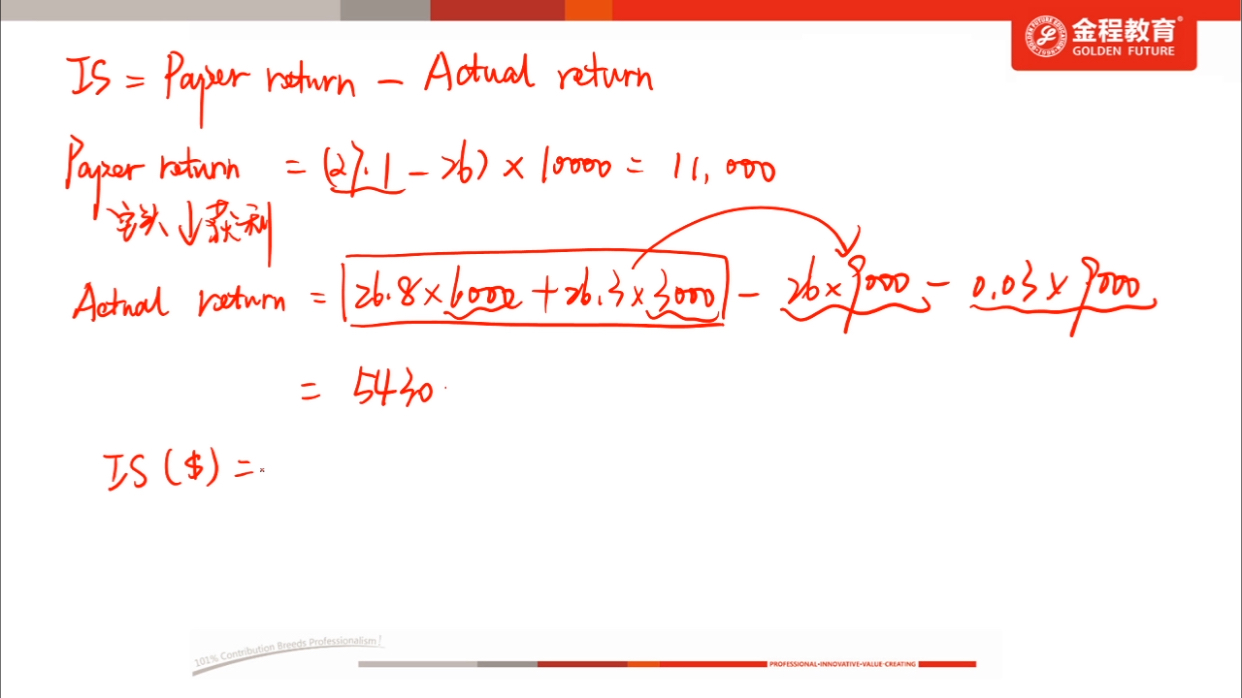 金程教育®
GOLDEN FUTURE
IS = Paper return - Actual return
Paper return = (27.1 - 26) × 10000 = 11,000
空头↓获利
Actual return = 26.8×6000 + 26.3×3000 - 26×9000 - 0.03×9000
= 5430
IS ($) =
101% Contribution Breeds Professionalism!
PROFESSIONAL·INNOVATIVE·VALUE-CREATING